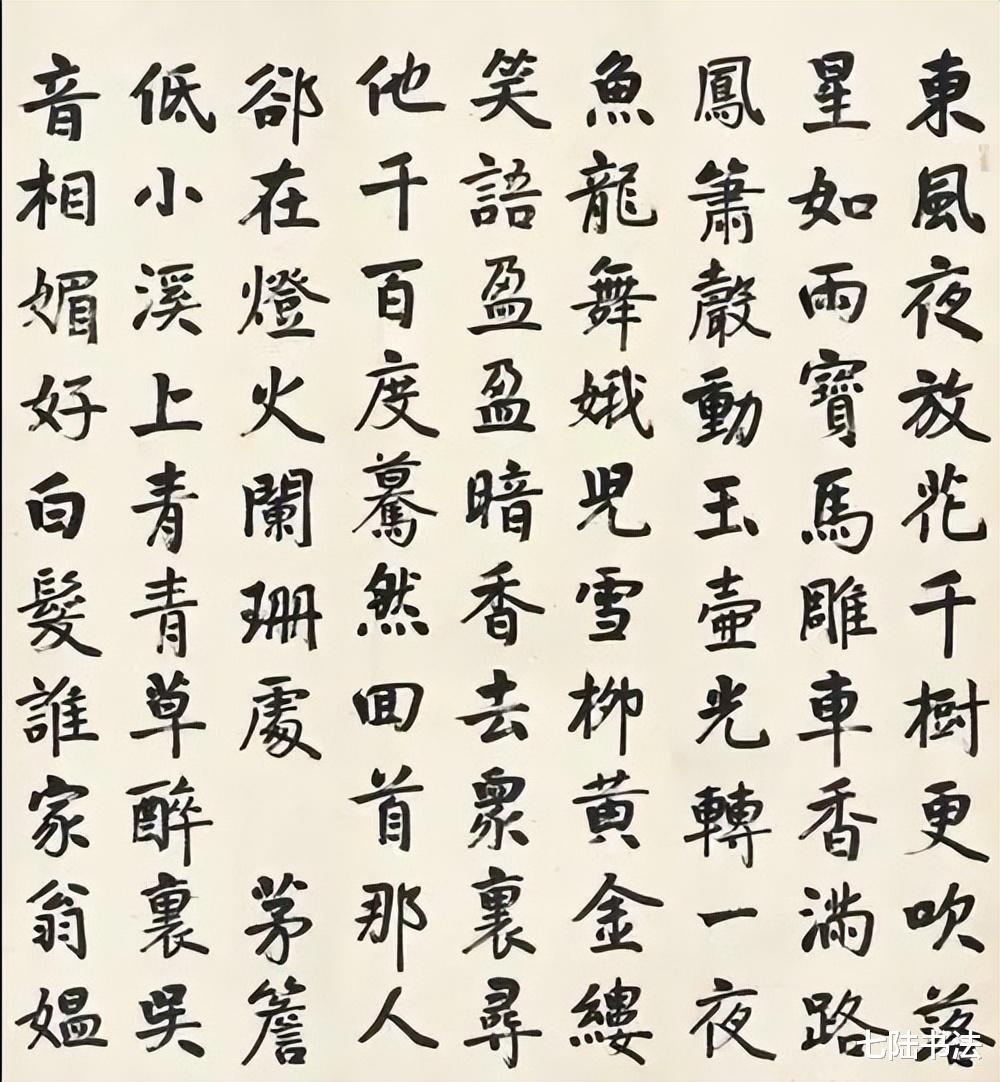 東風夜放花千樹更吹落
星如雨寶馬雕車香滿路
鳳簫聲動玉壺光轉一夜
魚龍舞娥兒雪柳黃金縷
笑語盈盈暗香去眾裏尋
他千百度驀然回首那人
郤在燈火闌珊處 茅簷
低小溪上青青草醉裏吳
音相媚好白髮誰家翁媼
七陆书法